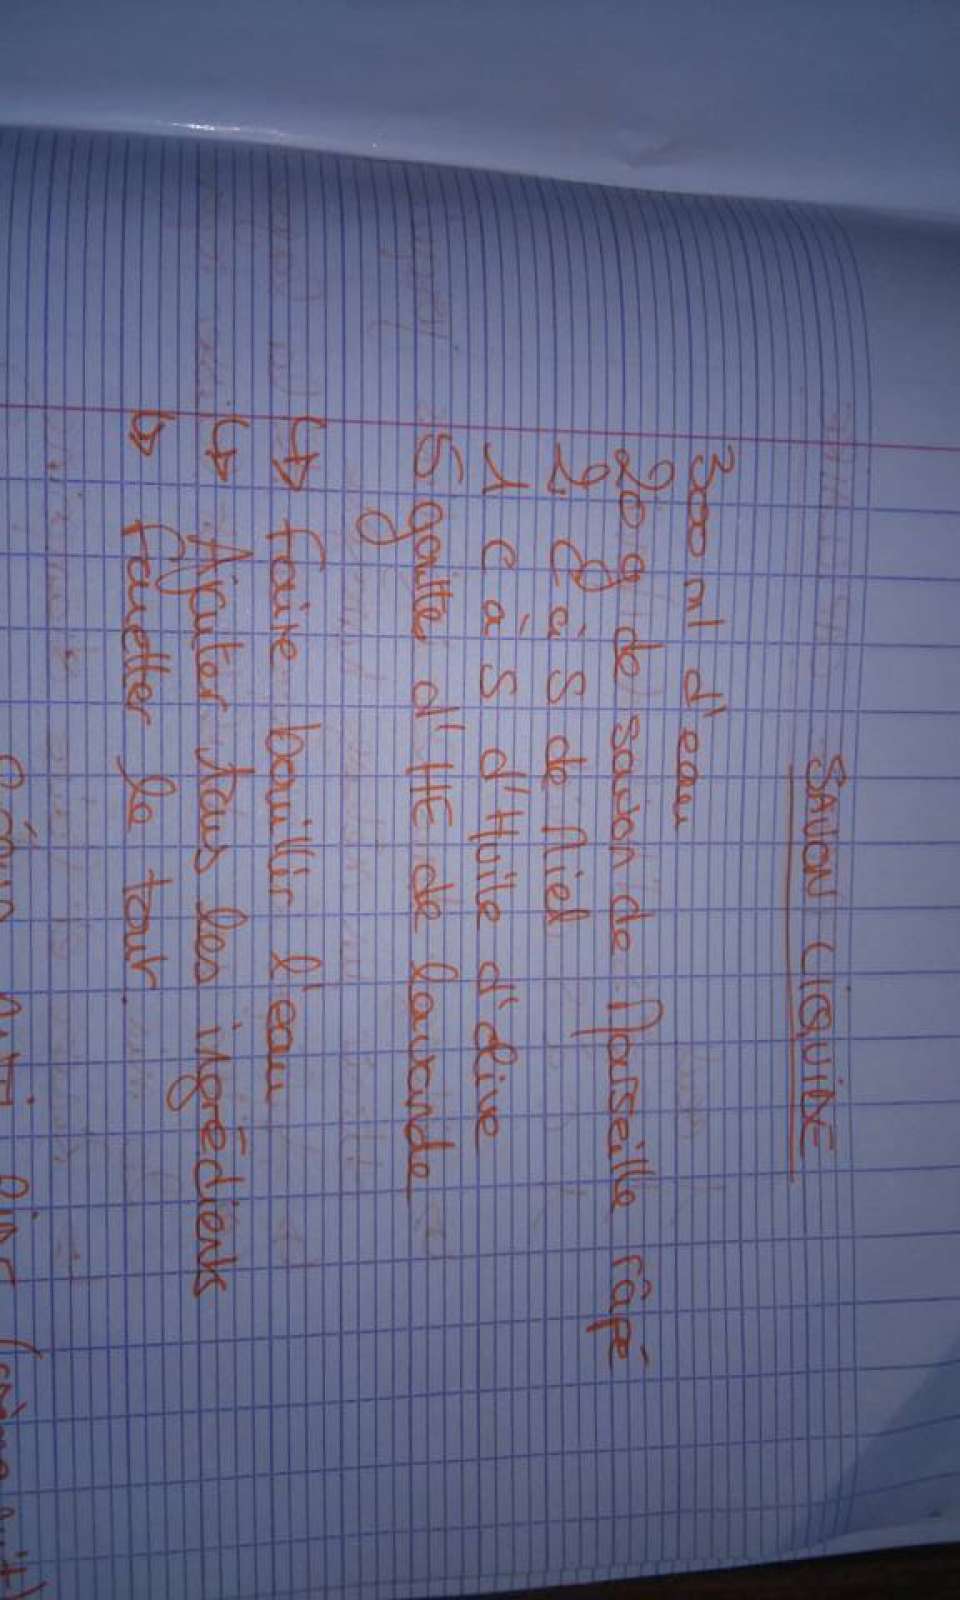 SAVON LIQUIDE
300 ml d'eau
20 g de savon de Marseille râpé
2 c à S de Miel
1 c à S d'Huile d'olive
5 goutte d'HE de lavande
↳ faire bouillir l'eau
↳ Ajouter tous les ingrédients
↳ fouetter le tout.